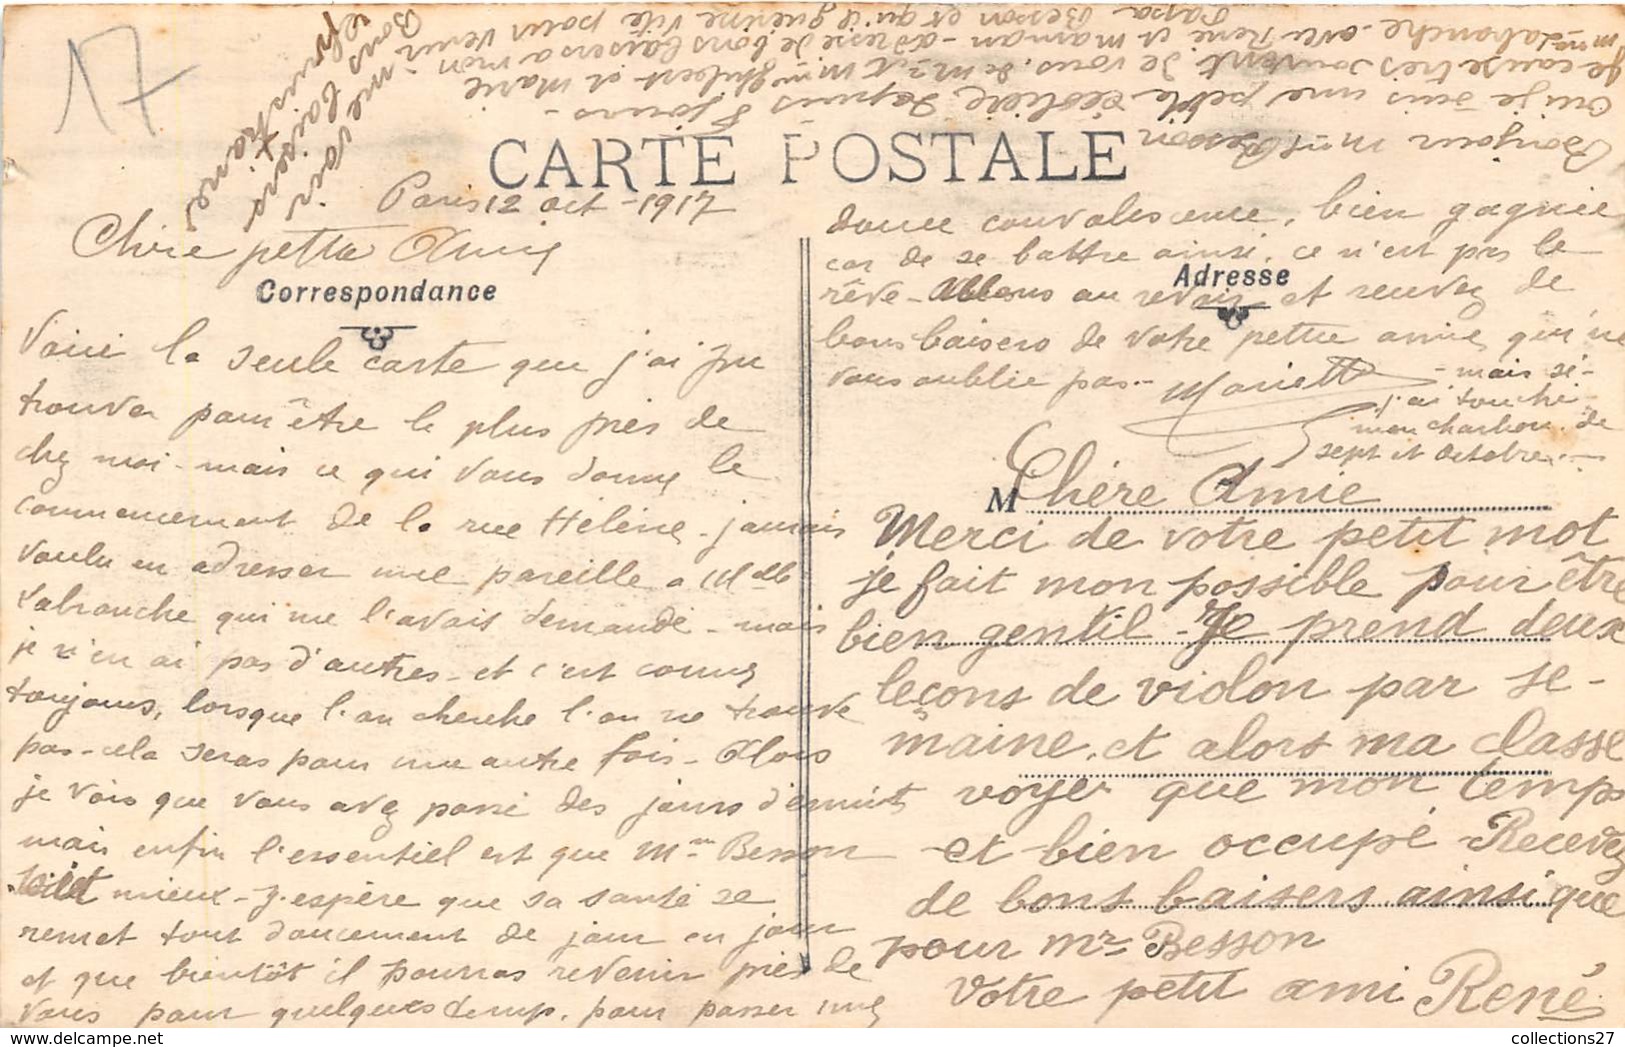 17
Bonjour Mme Besson
oui je suis une petite écolière depuis 8 jours -
Je cause très souvent de vous, de Mr et Mme Hubert et Marie
Mme Labranche avec René et maman - adresse de bons baisers a mon
Papa Besson et qu'il guérisse vite pour venir
me voir
Bons baisers
CARTE POSTALE
Paris 12 oct - 1917
Chère petite Amie
Correspondance
Voici la seule carte que j'ai pu
trouver pour être le plus près de
chez moi - mais ce qui vous donne le
commencement de la rue Hélène - j'aurais
voulu en adresser une pareille a Mdlle
Labranche qui me l'avait demandé - mais
je n'en ai pas d'autres - et c'est comme
toujours, lorsque l'on cherche l'on ne trouve
pas - cela seras pour une autre fois - Alors
je vois que vous avez passé des jours d'ennuits
mais enfin l'essentiel est que Mr Besson
soit mieux - J'espère que sa santé se
remet tout doucement de jour en jour
et que bientôt il pourras revenir près de
vous pour quelques temps, pour passer une
douce convalescence, bien gagnée
car de se battre ainsi, ce n'est pas le
Adresse
rêve - Allons au revoir et recevez de
bons baisers de votre petite amie qui ne
vous oublie pas - Mariette - mais si -
j'ai touché
mon charbon de
sept et octobre -
M Chère Amie
Merci de votre petit mot
je fait mon possible pour être
bien gentil - Je prend deux
leçons de violon par se-
maine, et alors ma classe
voyer que mon temps
et bien occupé - Recevez
de bons baisers ainsi que
pour Mr Besson
Votre petit ami René
collections27